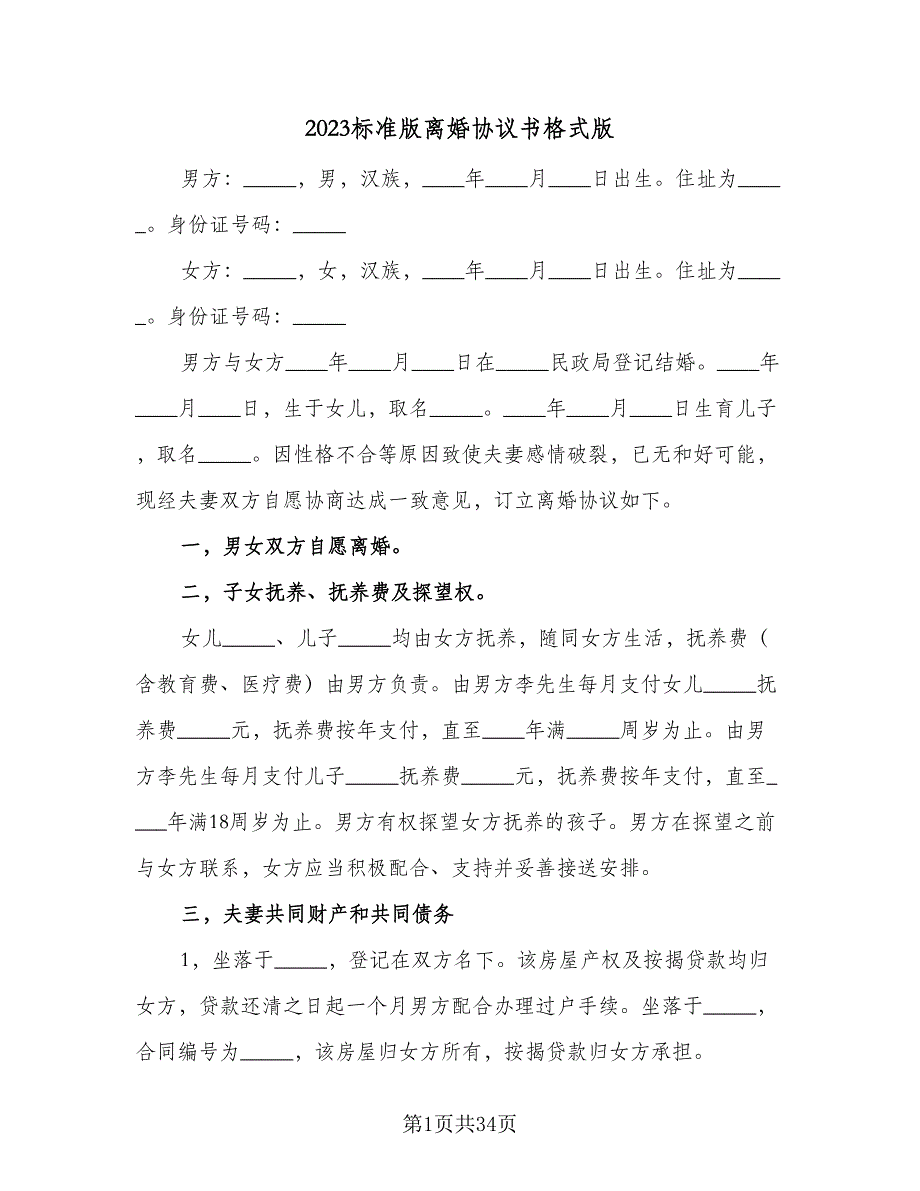 2023标准版离婚协议书格式版
男方：_____，男，汉族，____年____月____日出生。住址为____
_。身份证号码：_____
女方：_____，女，汉族，____年____月____日出生。住址为____
_。身份证号码：_____
男方与女方____年____月____日在_____民政局登记结婚。____年
____月____日，生于女儿，取名_____。____年____月____日生育儿子
，取名_____。因性格不合等原因致使夫妻感情破裂，已无和好可能，
现经夫妻双方自愿协商达成一致意见，订立离婚协议如下。
一，男女双方自愿离婚。
二，子女抚养、抚养费及探望权。
女儿_____、儿子_____均由女方抚养，随同女方生活，抚养费（
含教育费、医疗费）由男方负责。由男方李先生每月支付女儿_____抚
养费_____元，抚养费按年支付，直至____年满_____周岁为止。由男
方李先生每月支付儿子_____抚养费_____元，抚养费按年支付，直至_
___年满18周岁为止。男方有权探望女方抚养的孩子。男方在探望之前
与女方联系，女方应当积极配合、支持并妥善接送安排。
三，夫妻共同财产和共同债务
1，坐落于_____，登记在双方名下。该房屋产权及按揭贷款均归
女方，贷款还清之日起一个月男方配合办理过户手续。坐落于_____，
合同编号为_____，该房屋归女方所有，按揭贷款归女方承担。
第1页共34页